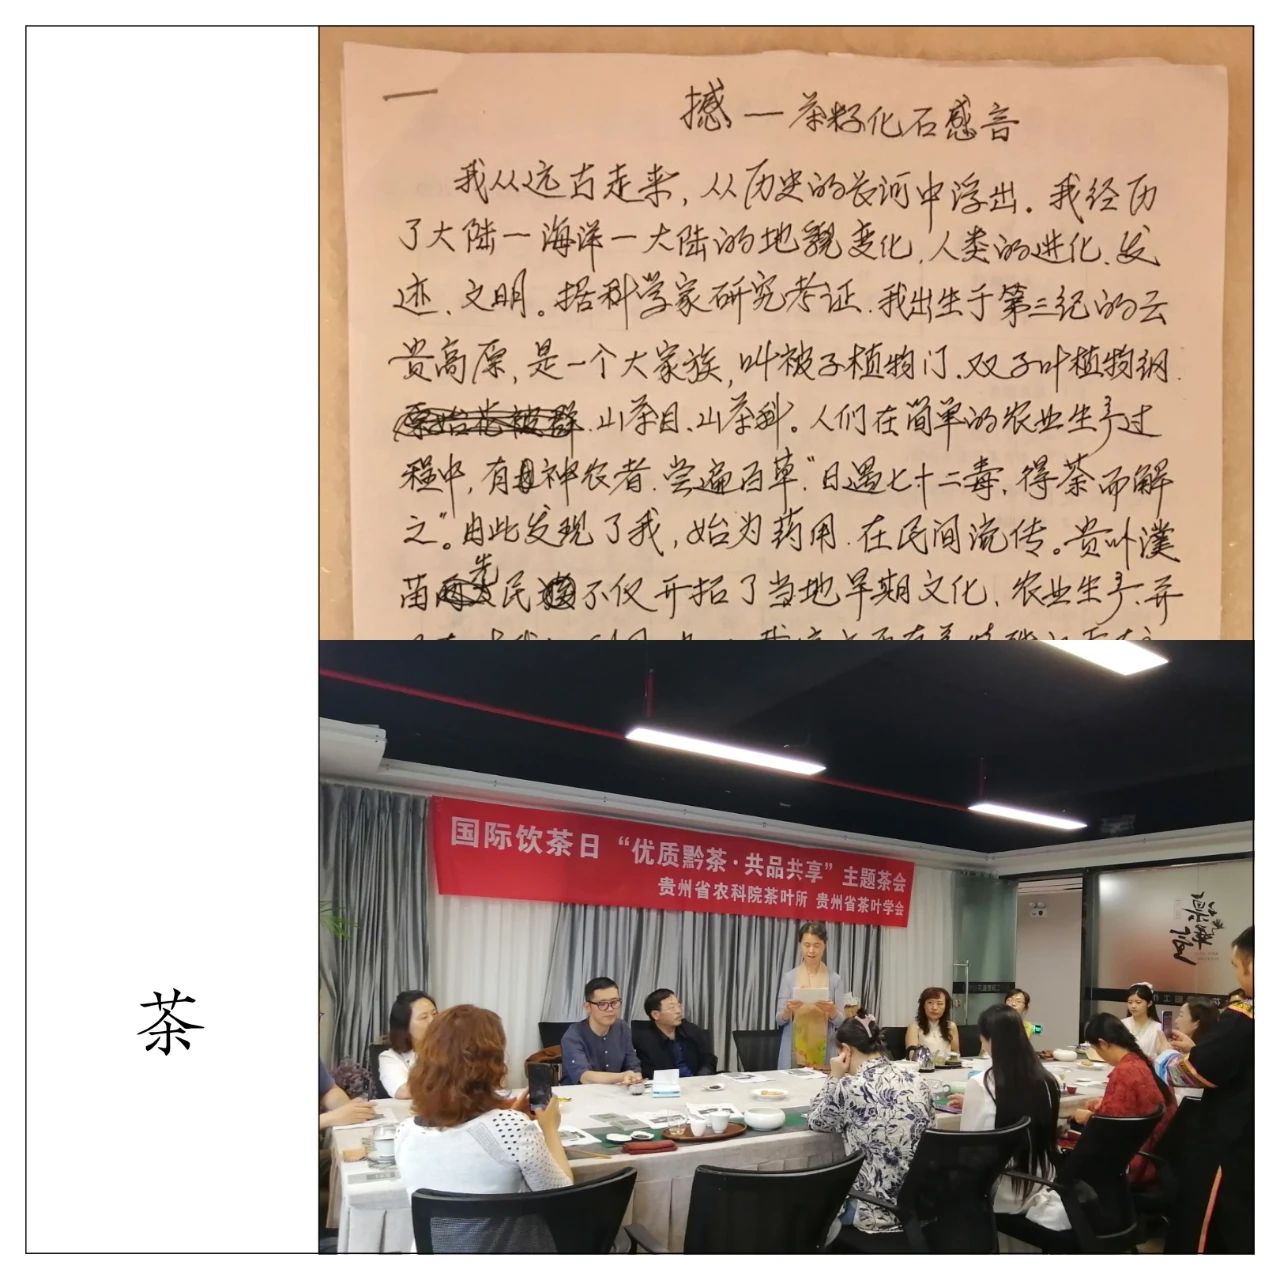 撼—茶籽化石感言
我从远古走来，从历史的长河中浮出。我经历
了大陆—海洋—大陆的地貌变化，人类的进化、发
迹、文明。据科学家研究考证，我出生于第三纪的云
贵高原，是一个大家族，叫被子植物门、双子叶植物纲、
山茶目、山茶科。人们在简单的农业生产过
程中，有神农者，尝遍百草，“日遇七十二毒，得荼而解
之”。由此发现了我，始为药用，在民间流传。贵州濮
苗先民不仅开拓了当地早期文化、农业生产，并
茶
国际饮茶日“优质黔茶·共品共享”主题茶会
贵州省农科院茶叶所 贵州省茶叶学会